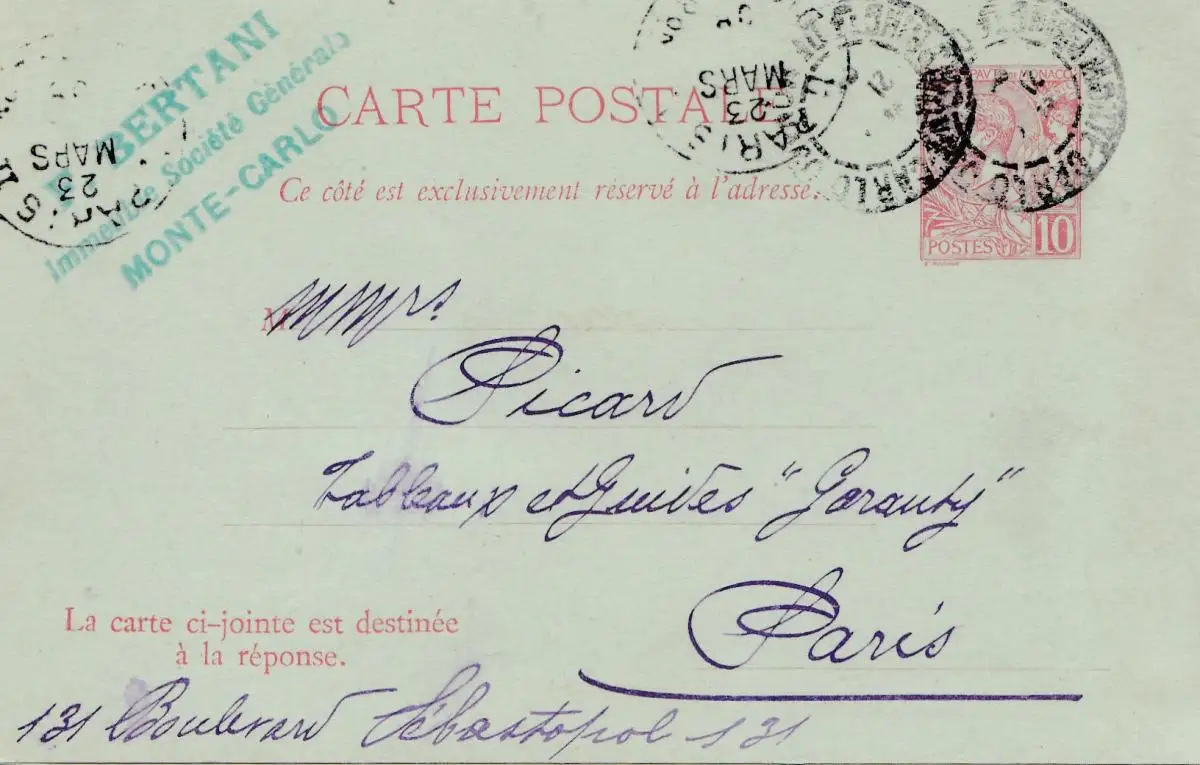 BERTANI
Immeuble Société Générale
MONTE-CARLO
CARTE POSTALE
Ce côté est exclusivement réservé à l'adresse.
PARIS
23
MARS
PARIS
23
MARS
21
POSTES 10
M mrs.
Picard
Tableaux et Guides "Garanty"
Paris
La carte ci-jointe est destinée
à la réponse.
131 Boulevard Sébastopol 131